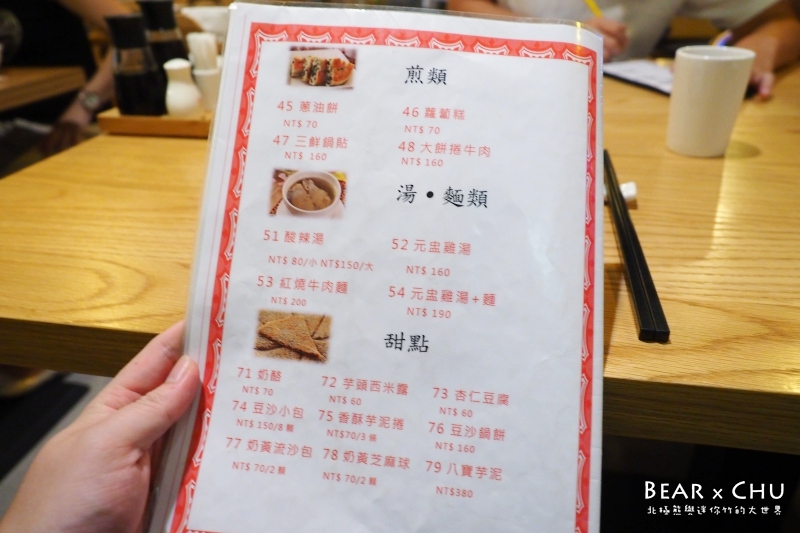 煎類
45 蔥油餅 46 蘿蔔糕
NT$ 70 NT$ 70
47 三鮮鍋貼 48 大餅捲牛肉
NT$ 160 NT$ 160
湯•麵類
51 酸辣湯 52 元盅雞湯
NT$ 80/小 NT$150/大 NT$ 160
53 紅燒牛肉麵 54 元盅雞湯+麵
NT$ 200 NT$ 190
甜點
71 奶酪 72 芋頭西米露 73 杏仁豆腐
NT$ 70 NT$ 60 NT$ 60
74 豆沙小包 75 香酥芋泥捲 76 豆沙鍋餅
NT$ 150/8顆 NT$70/3條 NT$ 160
77 奶黃流沙包 78 奶黃芝麻球 79 八寶芋泥
NT$ 70/2顆 NT$ 70/2顆 NT$380
BEAR x CHU
北極熊與迷你竹的大世界